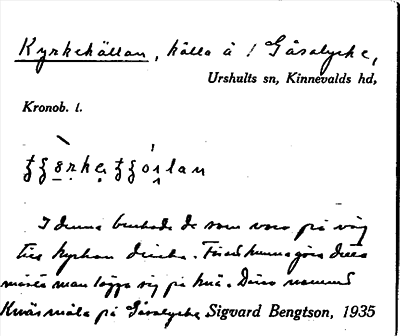 Kyrkekällan, källa å 1 Gåsalycke,
Urshults sn, Kinnevalds hd,
Kronob. l.
I denna brukade de som voro på väg
till kyrkan dricka. För att kunna göra detta
måste man lägga sig på knä. Därav namnet
Knäsmåla på Gåsalycke Sigvard Bengtson, 1935